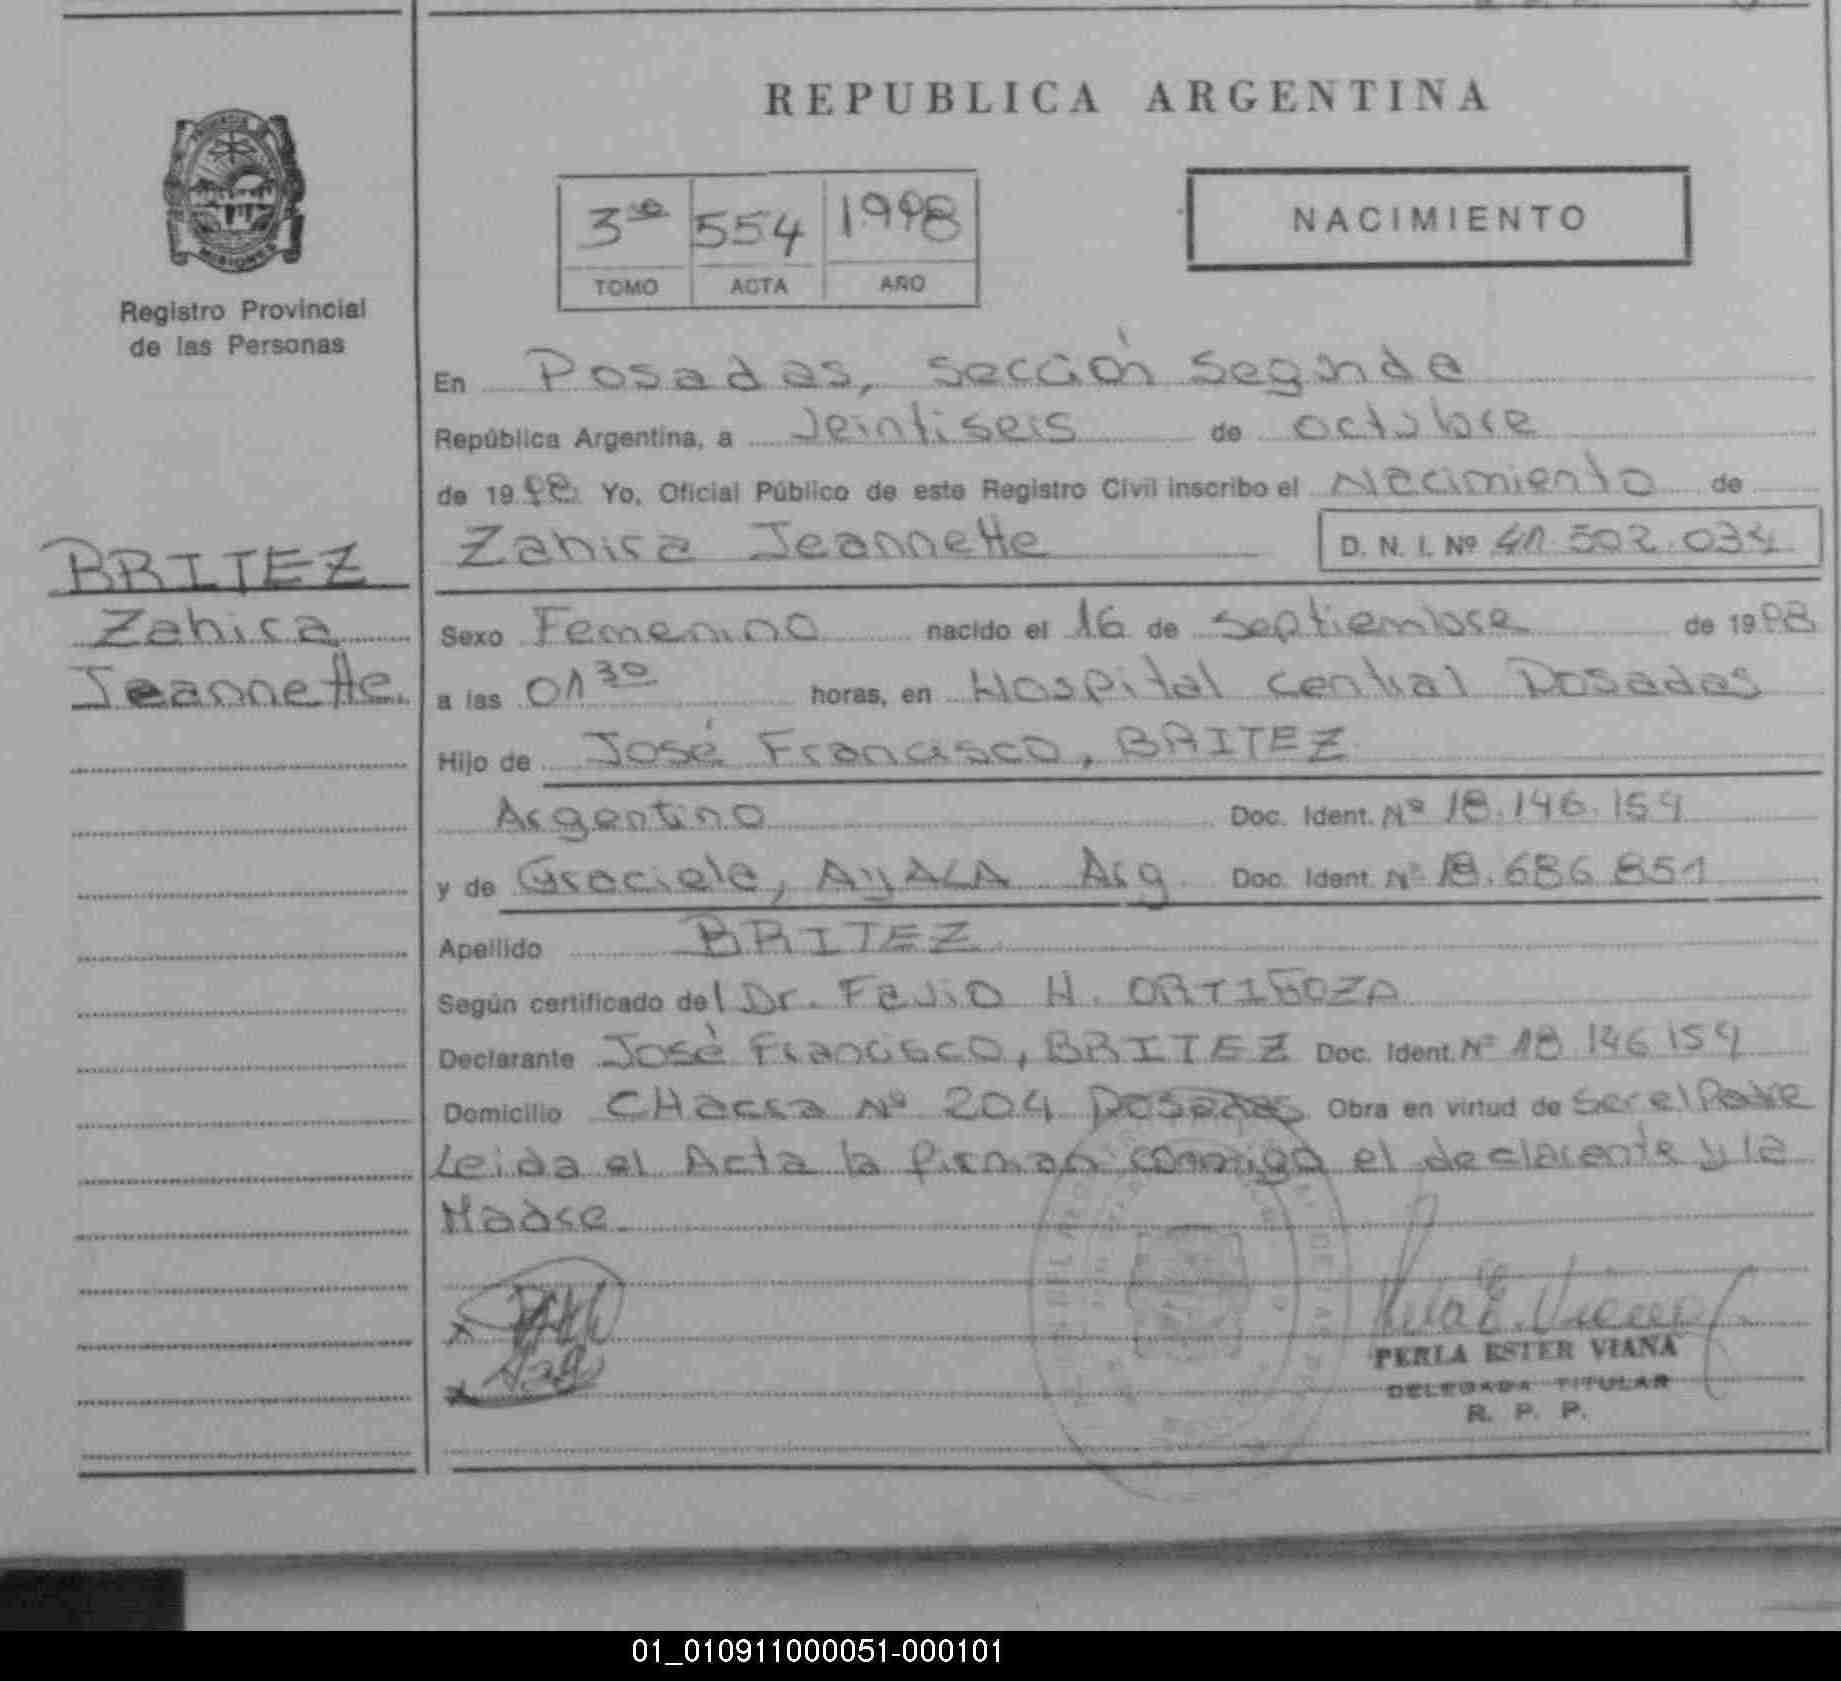 REPUBLICA ARGENTINA
PROVINCIA DE
MISIONES
Registro Provincial
de las Personas
3ro 554 1998
TOMO ACTA AÑO
NACIMIENTO
En Posadas, sección Segunda
República Argentina, a Veintiseis de octubre
de 1998 Yo, Oficial Público de este Registro Civil inscribo el Nacimiento de
Zahira Jeannette D. N. I. Nº 41.502.034
BRITEZ
Zahira
Jeannette.
Sexo Femenino nacido el 16 de Septiembre de 1998
a las 01 30 horas, en Hospital Central Posadas
Hijo de José Francisco, BRITEZ
Argentino Doc. Ident. Nº 18.146.154
y de Graciela, AyALA Arg. Doc. Ident. Nº 18.686.851
Apellido BRITEZ
Según certificado del Dr. Favio H. ORTIGOZA
Declarante José Francisco, BRITEZ Doc. Ident. Nº 18 146 154
Domicilio CHacra Nº 204 Posadas Obra en virtud de Ser el Padre
Leida el Acta la firman conmigo el declarante y la
Madre
PERLA ESTER VIANA
DELEGADA TITULAR
R. P. P.
01_010911000051-000101